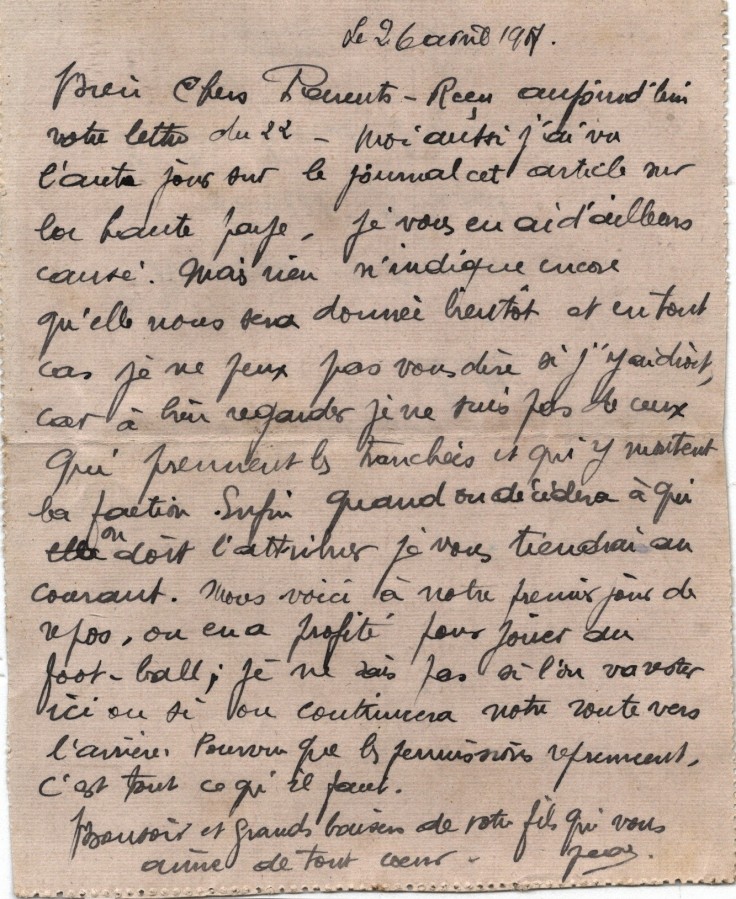 Le 26 avril 1917.
Bien Chers Parents - Reçu aujourd'hui
votre lettre du 22 - Moi aussi j'ai vu
l'autre jour sur le journal cet article sur
la haute paye, je vous en ai d'ailleurs
causé. Mais rien n'indique encore
qu'elle nous sera donnée bientôt et en tout
cas je ne peux pas vous dire si j'y ai droit,
car à bien regarder je ne suis pas de ceux
qui prennent les tranchées et qui y montent
la faction. Enfin quand on décidera à qui
on doit l'attribuer je vous tiendrai au
courant. Nous voici à notre premier jour de
repos, on en a profité pour jouer au
foot-ball; je ne sais pas si l'on va rester
ici ou si on continuera notre route vers
l'arrière. Pourvu que les permissions reprennent,
c'est tout ce qu'il faut.
Bonsoir et grands baisers de votre fils qui vous
aime de tout coeur -